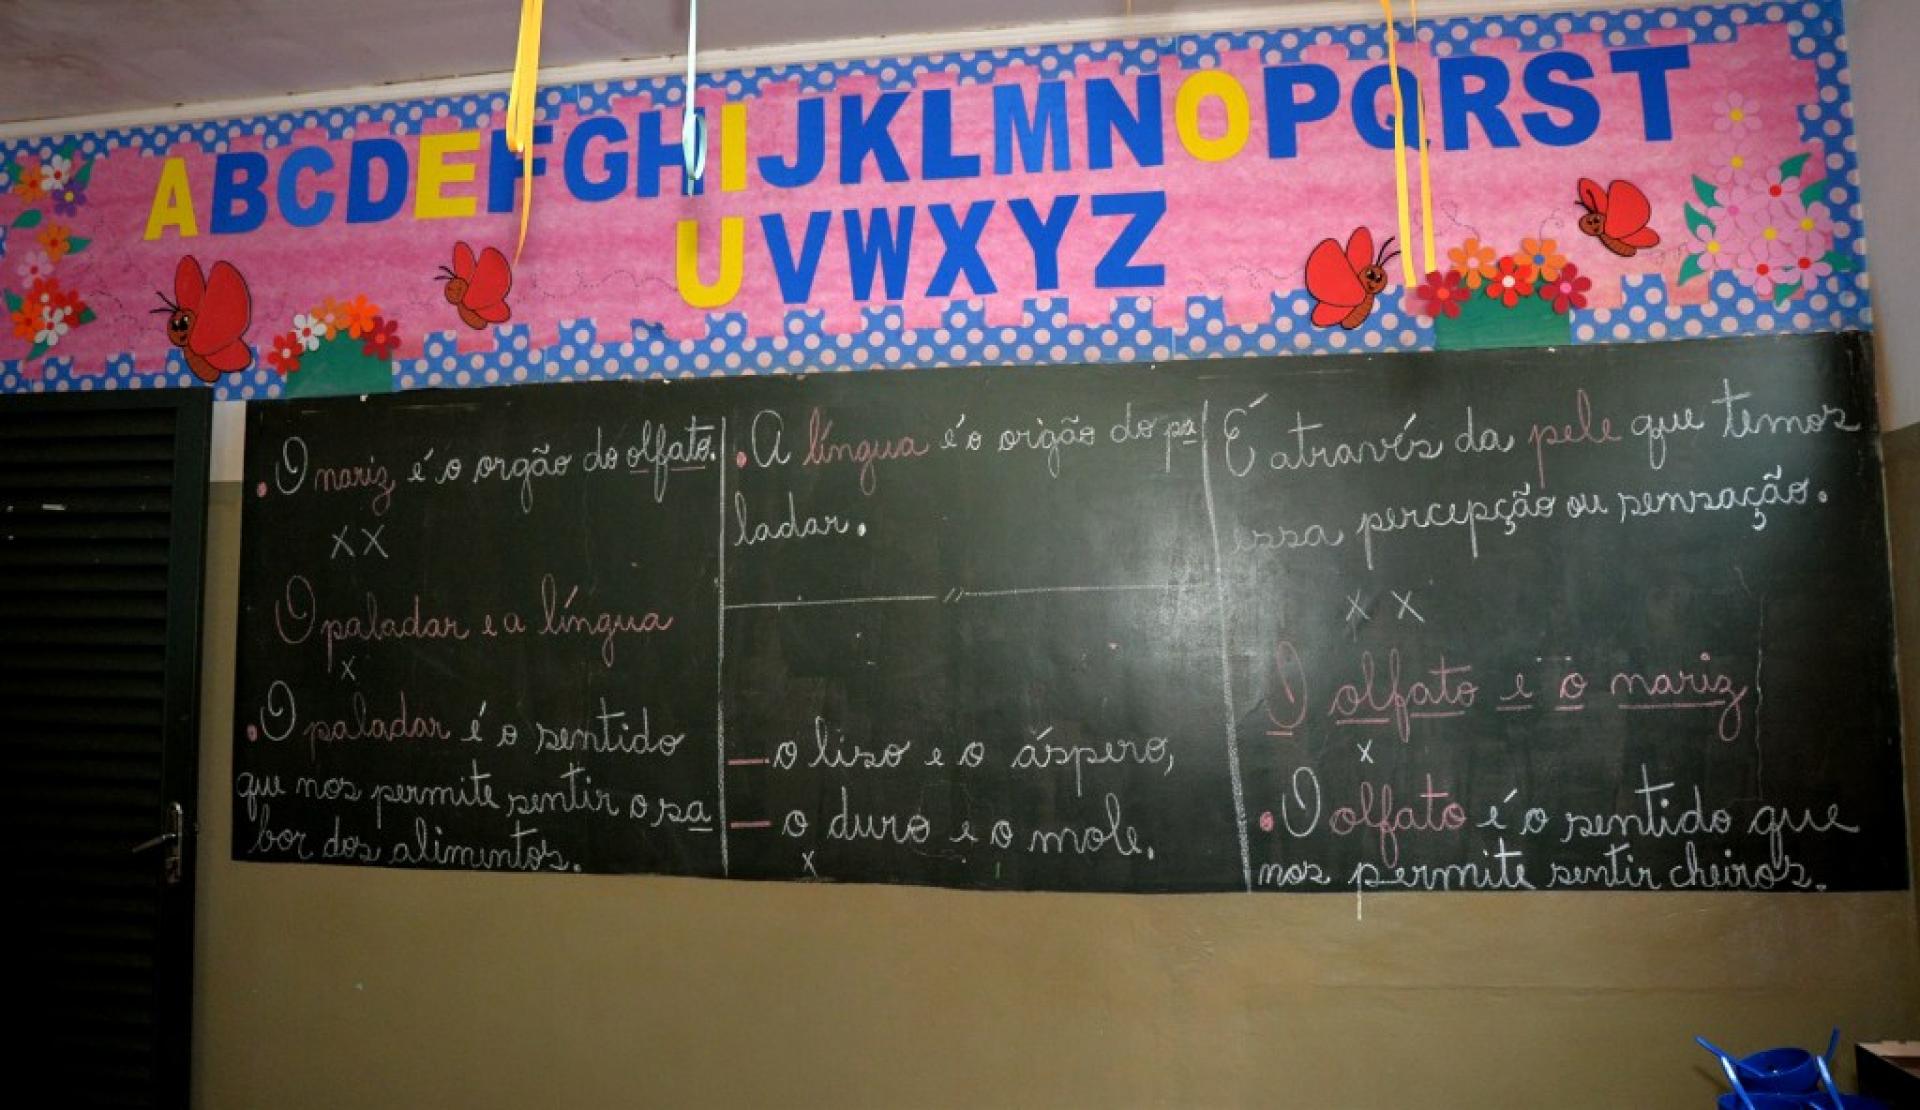 ABCDEFGHIJKLMNOPQRST
UVWXYZ
.O nariz é o orgão do olfato.
XX
O paladar e a língua
x
.O paladar é o sentido
que nos permite sentir o sa
bor dos alimentos.
.A língua é o orgão do pa
ladar.
//
— o liso e o áspero,
— o duro e o mole.
x
É através da pele que temos
essa percepção ou sensação.
X X
O olfato e o nariz
x
.O olfato é o sentido que
nos permite sentir cheiros.